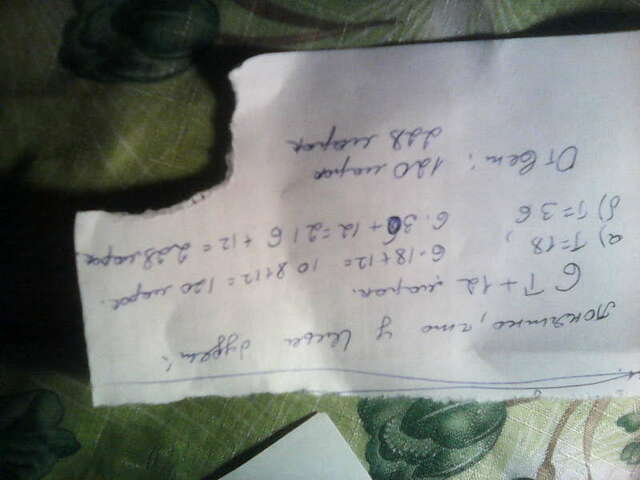 понятно, что у Севы будет:
6T+12 марок.
а) T=18, 6·18+12=108+12=120 марок.
б) T=36 6·36+12=216+12=228 марок
Ответ: 120 марок
228 марок